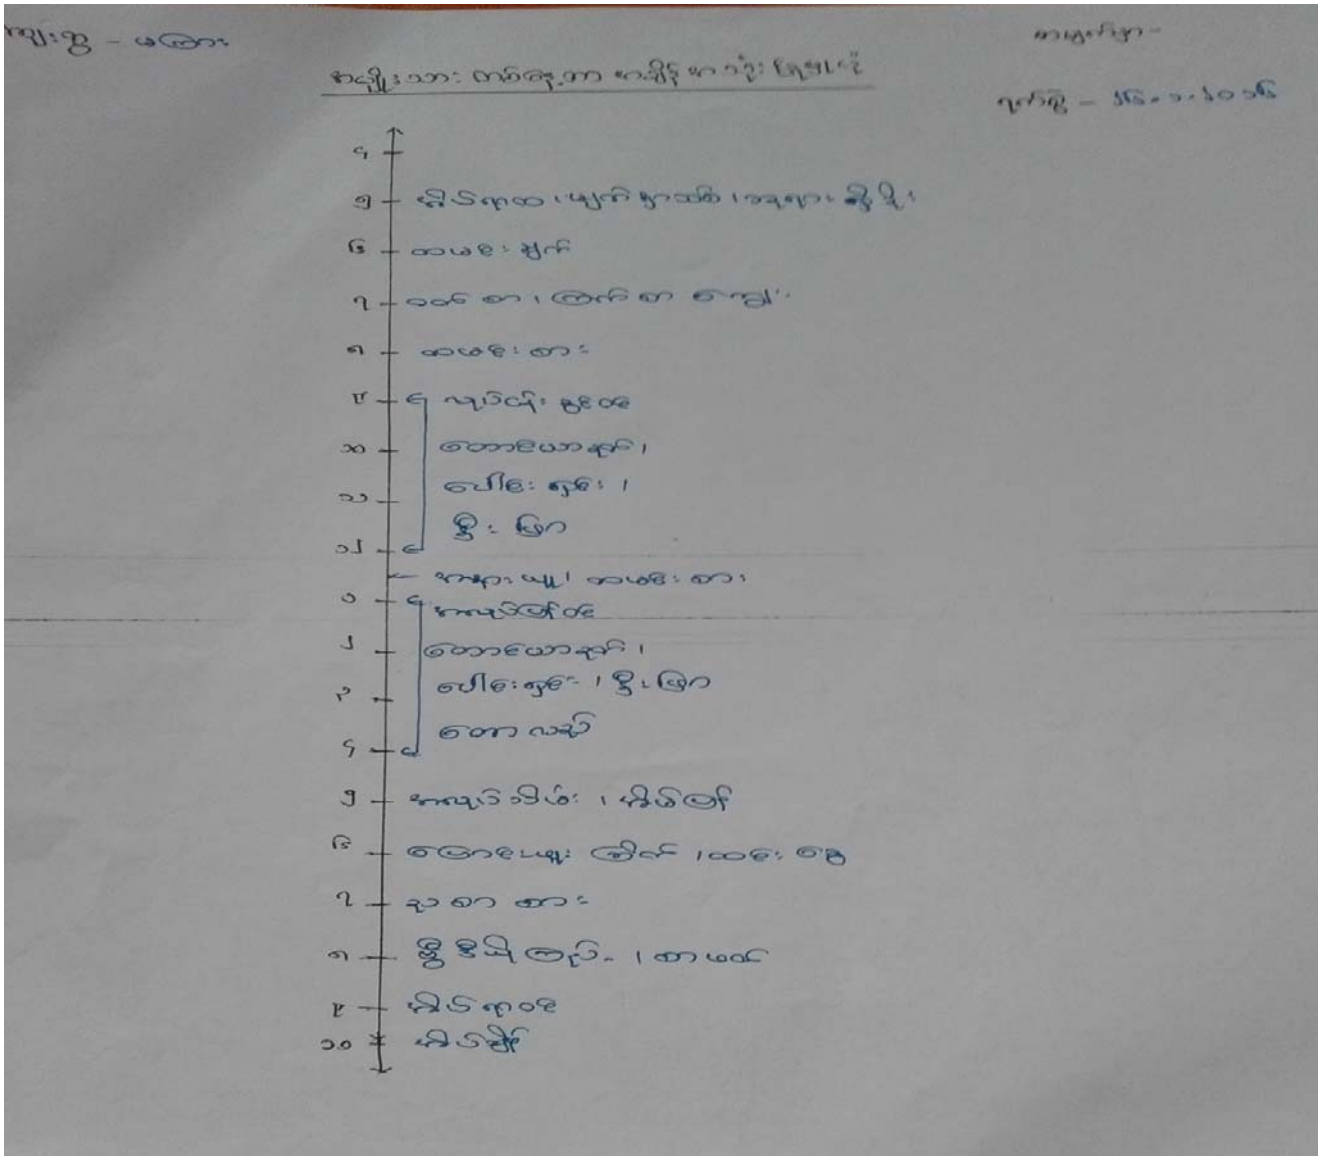 ကျေးရွာ - ဖကြား
စာမျက်နှာ -
အမျိုးသား တစ်နေ့တာ အချိန် အသုံးပြုမှုပုံ
ရက်စွဲ - ၂၆.၁.၂၀၁၆
၄
၅ အိပ်ရာထ ၊ မျက်နှာသစ် ၊ ဘုရား ရှိခိုး
၆ ထမင်းချက်
၇ ဝတ်စာ ၊ ကြက်စာ ကျွေး
၈ ထမင်းစား
၉ လုပ်ငန်းခွင်ဝင်
၁၀ တောင်ယာခုတ် ၊
၁၁ ပေါင်းရှင်း ၊
စိုးပြက
၁၂
အနားယူ၊ ထမင်းစား
၁ အလုပ်ပြန်ဝင်
၂ တောင်ယာခုတ် ၊
ပေါင်းရှင်း ၊ စိုးပြက
၃
တောလည်
၄
၅ အလုပ်သိမ်း ၊ အိမ်ပြန်
၆ ပြောင်းဖူး ကြိတ် ၊ ထင်းခွေ
၇ ညစာ စား
၈ ဗွီဒီယိုကြည့် ၊ စာဖတ်
၉ အိပ်ရာဝင်
၁၀ အိပ်ချိန်